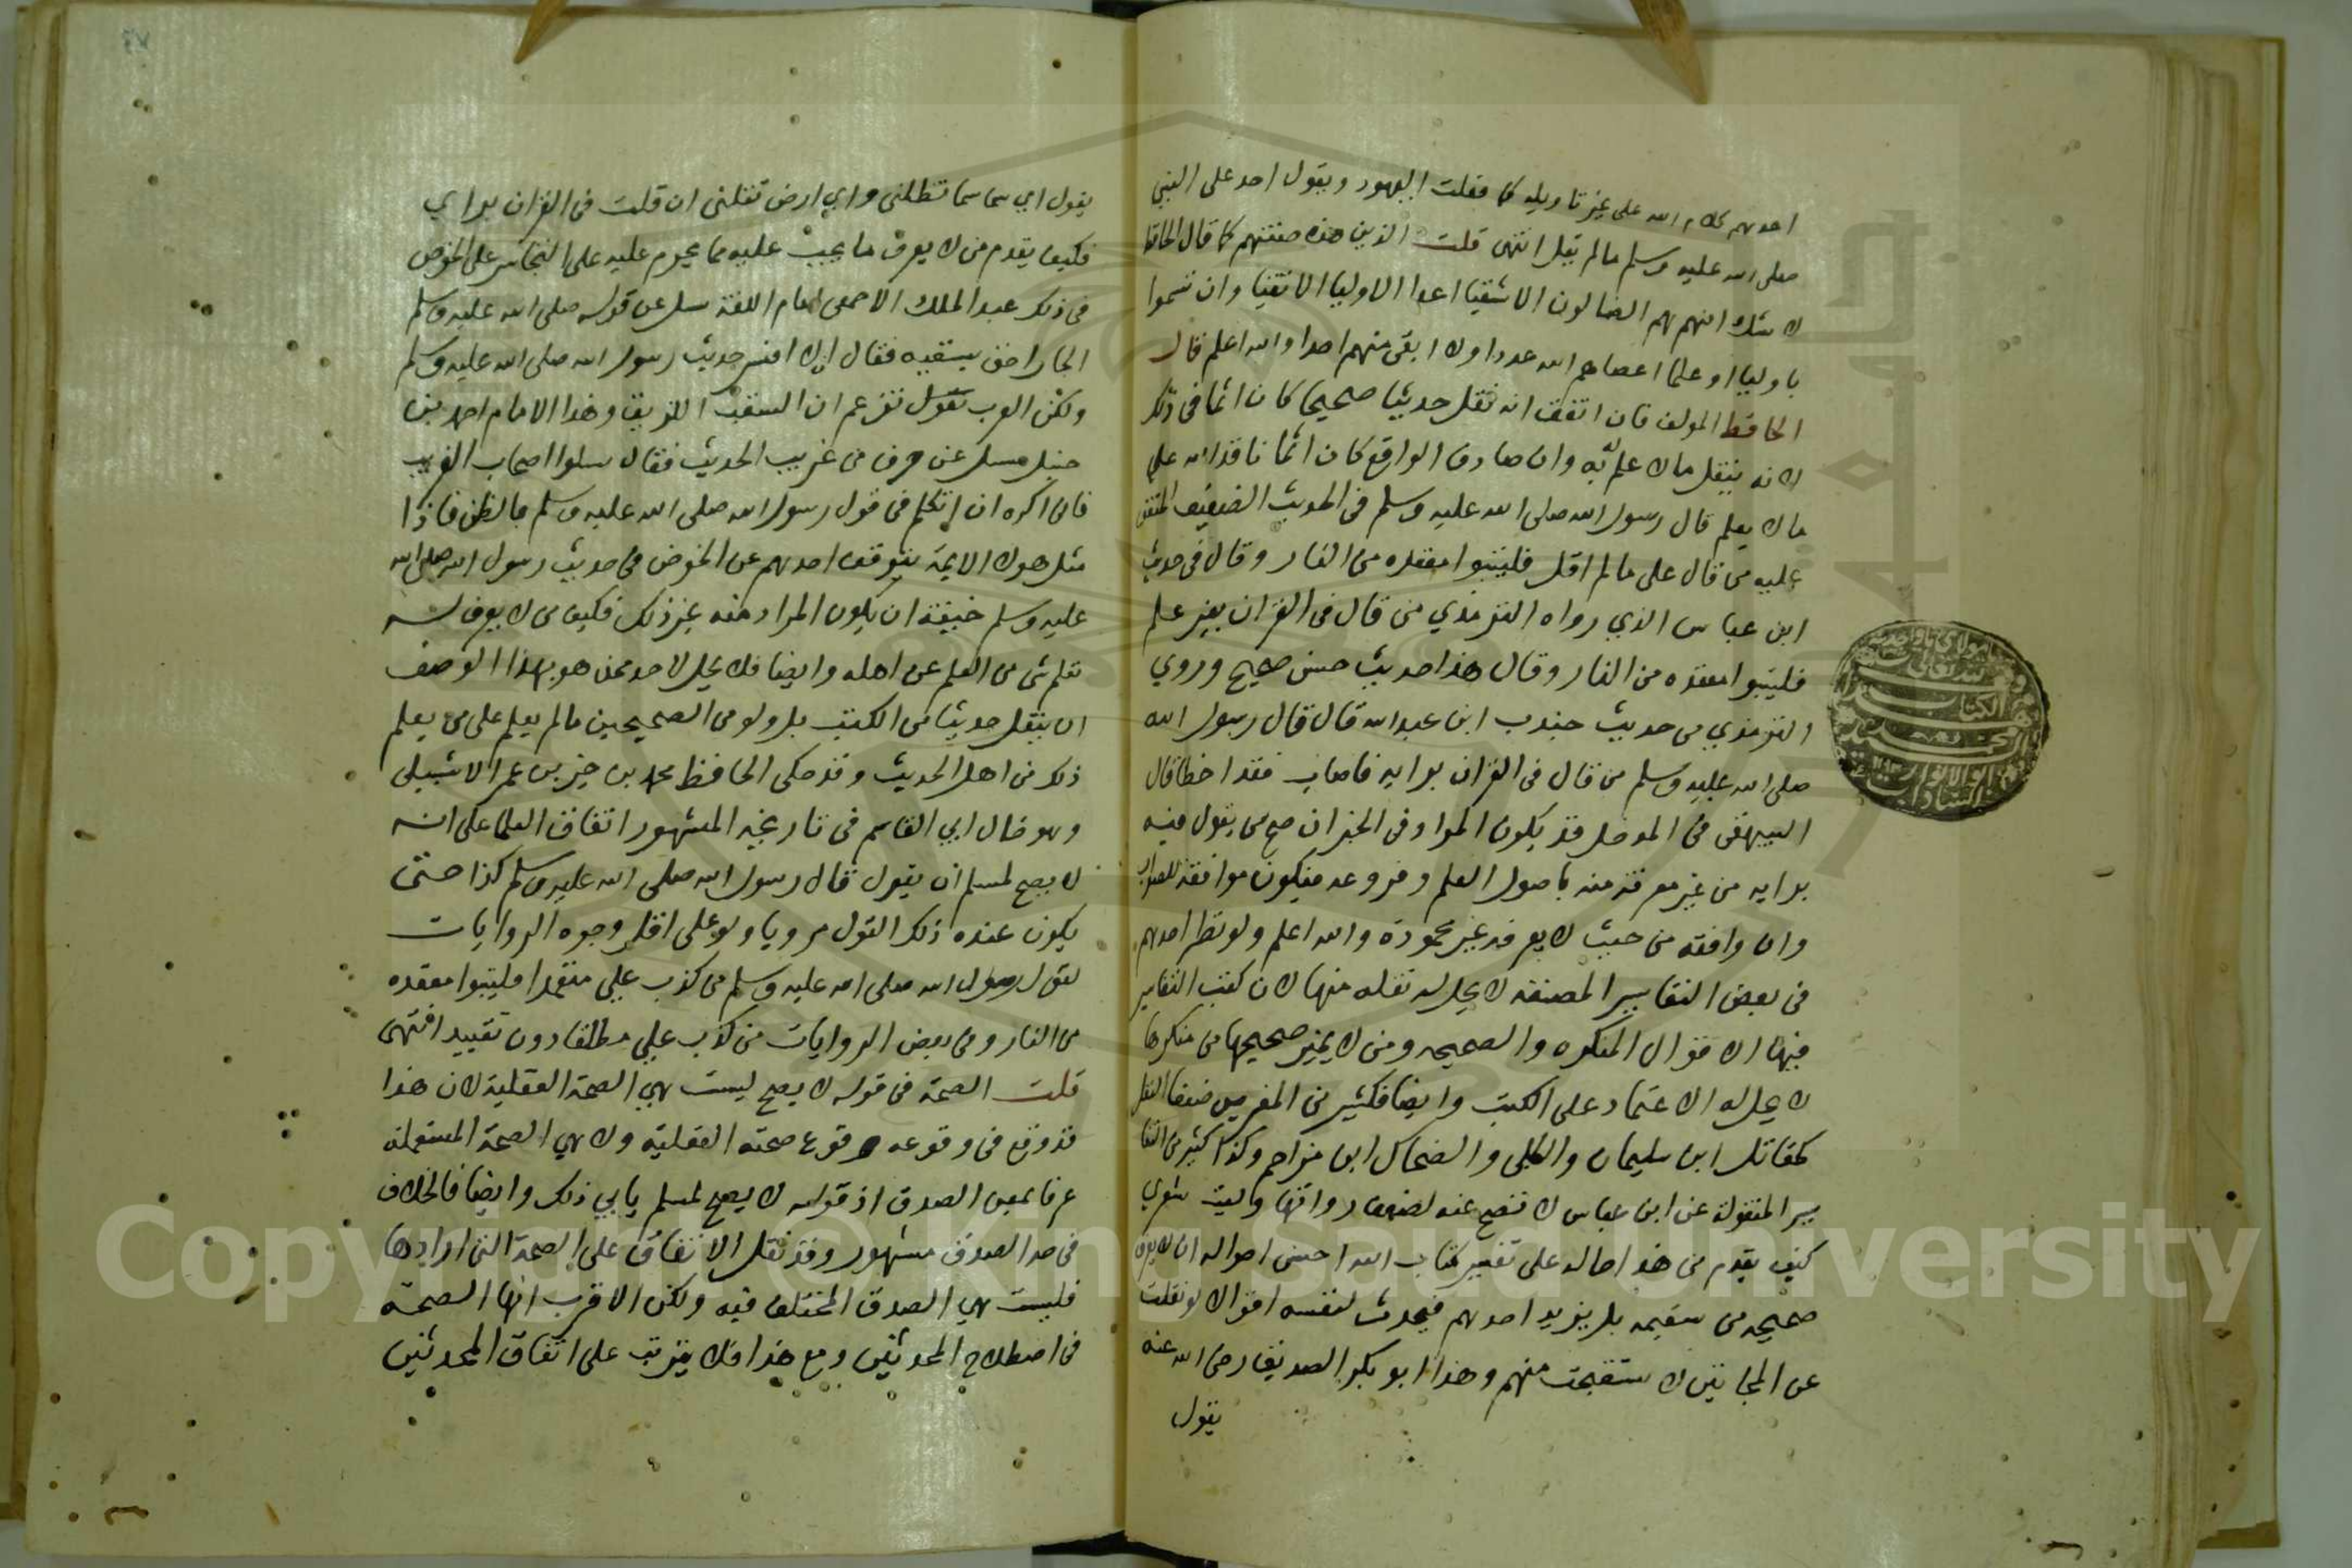 احدهم كلام الله على غير تاويله كما فعلت اليهود ويقول احد على النبي
صلى الله عليه وسلم مالم يقل انتهى قلت الذين هذه صفتهم كما قال الحافظ
لا شك انهم هم الضالون الاشقيا اعدا الاوليا الاتقيا وان تسموا
باوليا او علما احصاهم الله عددا ولا ابقى منهم احدا والله اعلم قال
الحافظ المولف فان اتفق انه نقل حديثا صحيحا كان اثما في ذلك
لانه ينقل مالا علم له به وان صادف الواقع كان اثما باقدامه على
مالا يعلم قال رسول الله صلى الله عليه وسلم في الحديث المتفق
عليه من قال على مالم اقل فليتبوا مقعده من النار وقال في حديث
ابن عباس الذي رواه الترمذي من قال في القران بغير علم
فليتبوا مقعده من النار وقال هذا حديث حسن صحيح وروي
الترمذي من حديث جندب ابن عبد الله قال قال رسول الله
صلى الله عليه وسلم من قال في القران برايه فاصاب فقد اخطا قال
البيهقي في المدخل قد يكون المراد في الخبر ان صح من يقول فيه
برايه من غير معرفة منه باصول العلم وفروعه فيكون موافقته للصواب
وان وافقه من حيث لا يعرفه غير محمودة والله اعلم ولو نظر احدهم
في بعض التفاسير المصنفة لا يحل له نقله منها لان كتب التفاسير
فيها الاقوال المنكره والصحيحه ومن لا يميز صحيحها من منكرها
لا يحل له الاعتماد على الكتب وايضا فكثير من المفسرين ضعفا النقل
كمقاتل ابن سليمان والكلبي والضحاك ابن مزاحم وكذا كثير من التفا
سير المنقولة عن ابن عباس لا تصح عنه لضعف رواتها وليت شعري
كيف يقدم من هذا حاله على تفسير كتاب الله احسن احواله ان لا يعرف
صحيحه من سقيمه بل يزيد احدهم فيحدث لنفسه اقوالا لو نقلت
عن المجانين لاستقبحت منهم وهذا ابو بكر الصديق رضي الله عنه
يقول
يقول اي سما تظلني واي ارض تقلني ان قلت في القران براي
فكيف يقدم من لا يعرف ما يجب عليه مما يحرم عليه على التجاسر على الخوض
في ذلك عبد الملك الاصمعي امام اللغة سل عن قوله صلى الله عليه وسلم
الجار احق بسقبه فقال انا لا افسر حديث رسول الله صلى الله عليه وسلم
ولكن العرب تزعم ان السقب اللزيق وهذا الامام احمد بن
حنبل سل عن حرف من غريب الحديث فقال سلوا اصحاب الغريب
فاني اكره ان اتكلم في قول رسول الله صلى الله عليه وسلم بالظن فاذا
مثل هولا الايمة يتوقف احدهم عن الخوض في حديث رسول الله صلى الله
عليه وسلم خيفة ان يكون المراد منه غير ذلك فكيف من لا يعرف له
تعلم شي من العلم عن اهله وايضا فلا يحل لاحد ممن هو بهذا الوصف
ان ينقل حديثا من الكتب بل ولو من الصحيحين مالم يعلم على من يعلم
ذلك من اهل الحديث وقد حكى الحافظ محمد بن خير بن عمر الاشبيلي
وهو خال ابي القاسم في تاريخه المشهور اتفاق العلما على انه
لا يصح لمسلم ان يقول قال رسول الله صلى الله عليه وسلم كذا حتى
يكون عنده ذلك القول مرويا ولو على اقل وجوه الروايات
لقول رسول الله صلى الله عليه وسلم من كذب علي متعمدا فليتبوا مقعده
من النار وفي بعض الروايات من كذب علي مطلقا دون تقييد انتهى
قلت الصحة في قوله لا يصح ليست هي الصحة العقلية لان هذا
قد وقع في وقوعه وقوع صحته العقلية ولا هي الصحة المستعملة
عرفا بمعنى الصدق اذ قوله لا يصح لمسلم يابي ذلك وايضا فالخلاف
في حد الصدق مشهور وقد نقل الاتفاق على الصحة التي ارادها
فليست هي الصدق المختلف فيه ولكن الاقرب انها الصحة
في اصطلاح المحدثين ومع هذا فلا يترتب على اتفاق المحدثين
Copyright © King Saud University